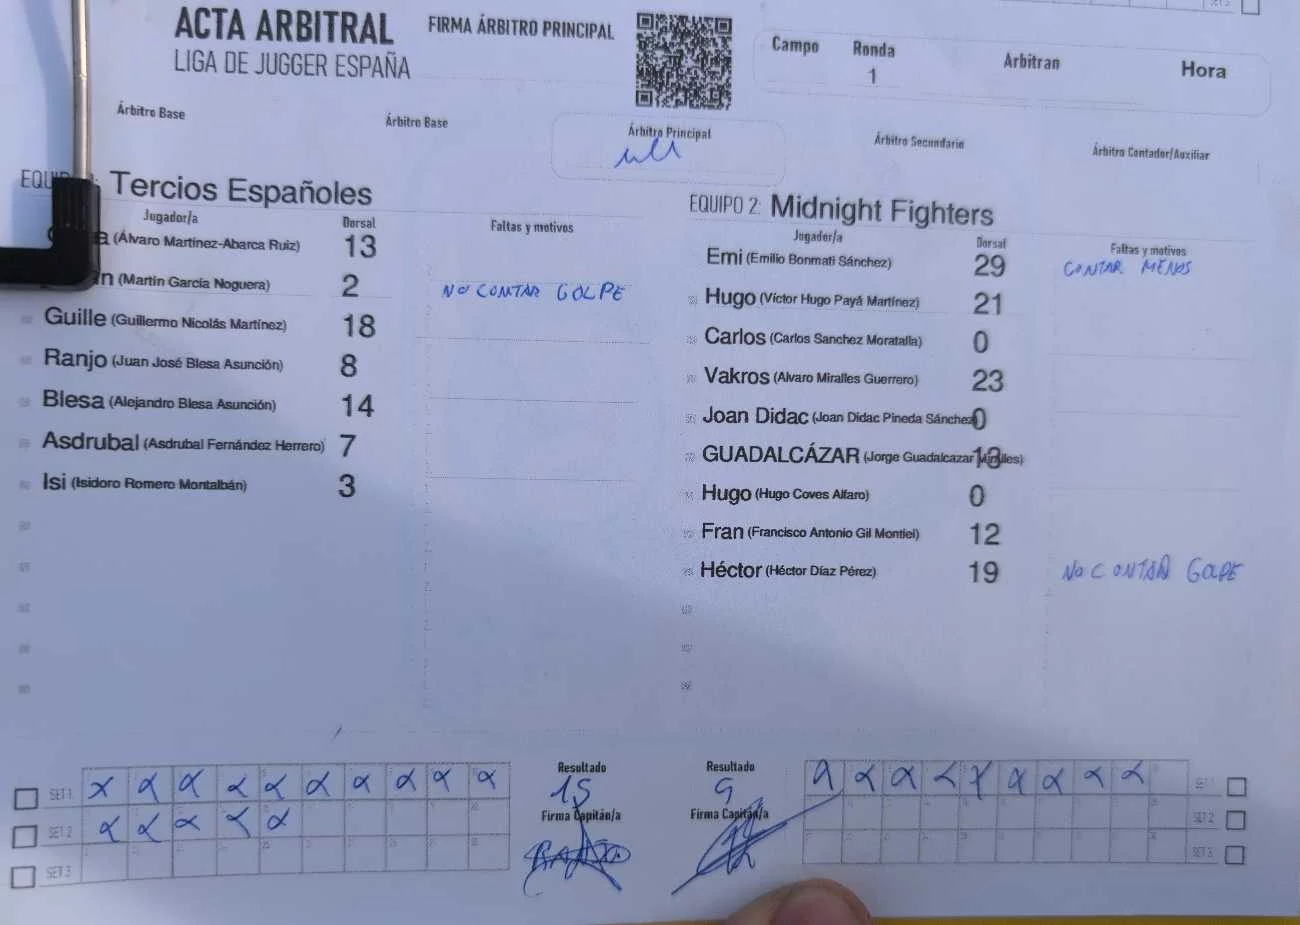 ACTA ARBITRAL
LIGA DE JUGGER ESPAÑA
FIRMA ÁRBITRO PRINCIPAL
Campo Ronda Arbitran Hora
1
Árbitro Base Árbitro Base Árbitro Principal Árbitro Secundario Árbitro Contador/Auxiliar
Tercios Españoles
Jugador/a Dorsal Faltas y motivos
(Álvaro Martínez-Abarca Ruiz) 13
(Martín García Noguera) 2 NO CONTAR GOLPE
Guille (Guillermo Nicolás Martínez) 18
Ranjo (Juan José Blesa Asunción) 8
Blesa (Alejandro Blesa Asunción) 14
Asdrubal (Asdrubal Fernández Herrero) 7
Isi (Isidoro Romero Montalbán) 3
EQUIPO 2: Midnight Fighters
Jugador/a Dorsal Faltas y motivos
Emi (Emilio Bonmati Sánchez) 29 CONTAR MENOS
Hugo (Víctor Hugo Payá Martínez) 21
Carlos (Carlos Sanchez Moratalla) 0
Vakros (Alvaro Miralles Guerrero) 23
Joan Didac (Joan Didac Pineda Sánchez) 0
GUADALCÁZAR (Jorge Guadalcazar Miralles) 13
Hugo (Hugo Coves Alfaro) 0
Fran (Francisco Antonio Gil Montiel) 12
Héctor (Héctor Díaz Pérez) 19 NO CONTAR GOLPE
SET 1
SET 2
SET 3
Resultado
15
Firma Capitán/a
Resultado
9
Firma Capitán/a
SET 1
SET 2
SET 3